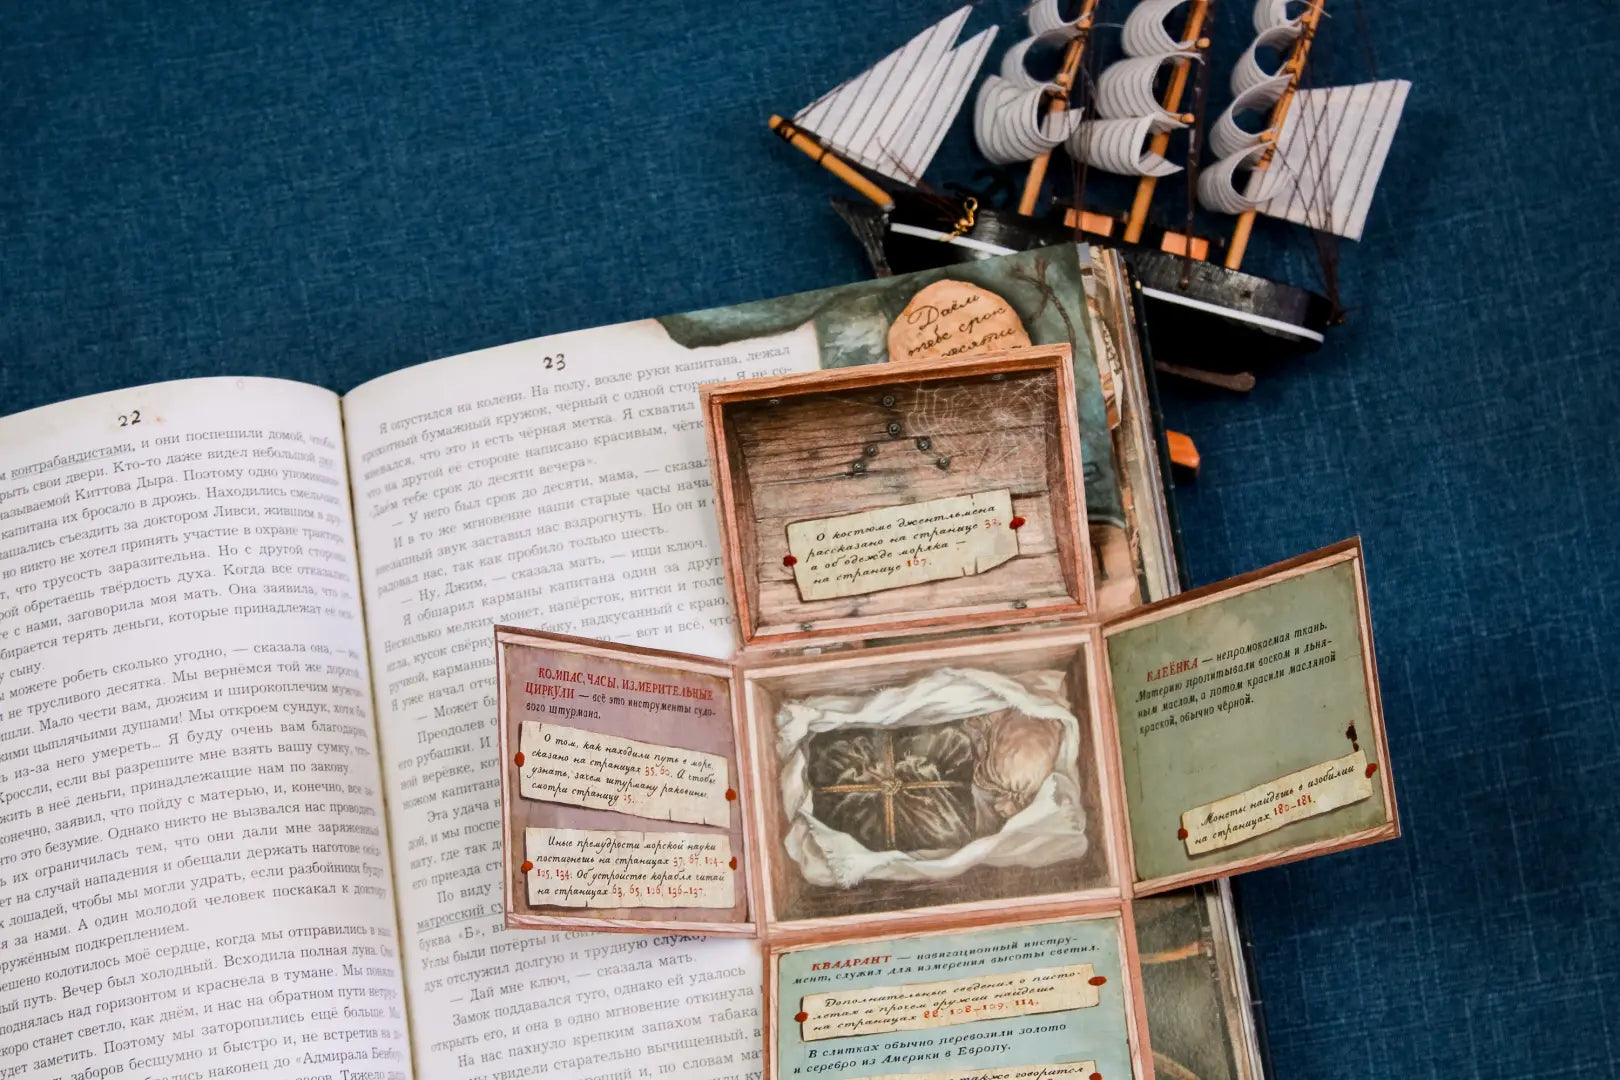 22
контрабандистами, и они поспешили домой, чтобы
рыть свои двери. Кто-то даже видел небольшой
называемой Киттова Дыра. Поэтому одно упоминание
капитана их бросало в дрожь. Находились смельчаки,
лашались съездить за доктором Ливси, жившим в
но никто не хотел принять участие в охране трактира.
т, что трусость заразительна. Но с другой стороны
рой обретаешь твёрдость духа. Когда все отказались
те с нами, заговорила моя мать. Она заявила, что не
бирается терять деньги, которые принадлежат её
сыну.
ы можете робеть сколько угодно, — сказала она, —
и не трусливого десятка. Мы вернёмся той же дорогой,
шли. Мало чести вам, дюжим и широкоплечим мужчинам
кими цыплячьими душами! Мы откроем сундук, хотя бы
ь из-за него умереть... Я буду очень вам благодарна,
Кроссли, если вы разрешите мне взять вашу сумку,
жить в неё деньги, принадлежащие нам по закону.
конечно, заявил, что пойду с матерью, и, конечно, все
что это безумие. Однако никто не вызвался нас проводить.
ь их ограничилась тем, что они дали мне заряженный
ет на случай нападения и обещали держать наготове
х лошадей, чтобы мы могли удрать, если разбойники будут
я за нами. А один молодой человек поскакал к доктору
оружённым подкреплением.
решено колотилось моё сердце, когда мы отправились в
ный путь. Вечер был холодный. Всходила полная луна.
поднялась над горизонтом и краснела в тумане. Мы поняли,
скоро станет светло, как днём, и нас на обратном пути
будет заметить. Поэтому мы заторопились ещё больше. Мы
ь заборов бесшумно и быстро и, не встретив на
лись наконец до «Адмирала Бенбоу»
Тяжело
23
Я опустился на колени. На полу, возле руки капитана, лежал
крохотный бумажный кружок, чёрный с одной стороны. Я не со-
мневался, что это и есть чёрная метка. Я схватил
что на другой её стороне написано красивым,
«Даём тебе срок до десяти вечера».
— У него был срок до десяти, мама, — сказал
И в то же мгновение наши старые часы
внезапный звук заставил нас вздрогнуть. Но он и
радовал нас, так как пробило только шесть.
— Ну, Джим, — сказала мать, — ищи ключ.
Я обшарил карманы капитана один за
Несколько мелких монет, напёрсток, нитки и
игла, кусок надкусанный с краю,
ручкой, карманный — вот и всё,
Я уже начал
— Может
Преодолев
его рубашки. И
ной верёвке,
ножом капитана
Эта удача
дой, и мы
нату, где так
его приезда
По виду
матросский
буква «Б»,
Углы были потёрты и
дук отслужил долгую и трудную службу
— Дай мне ключ, — сказала мать.
Замок поддавался туго, однако ей удалось
открыть его, и она в одно мгновение откинула
На нас пахнуло крепким запахом табака
мы увидели старательно вычищенный,
и, по словам
Даём
тебе срок
десяти
О костюме джентльмена
рассказано на странице 32,
а об одежде моряка —
на странице 167.
КОМПАС, ЧАСЫ, ИЗМЕРИТЕЛЬНЫЕ
ЦИРКУЛИ — всё это инструменты судо-
вого штурмана.
О том, как находили путь в море,
сказано на страницах 35, 60. А чтобы
узнать, зачем штурману раковины,
смотри страницу 25.
Иные премудрости морской науки
постигнешь на страницах 37, 67, 124–
125, 134; Об устройстве корабля читай
на страницах 63, 65, 126, 136–137.
КЛЕЁНКА — непромокаемая ткань.
Материю пропитывали воском и льня-
ным маслом, а потом красили масляной
краской, обычно чёрной.
Монеты найдёшь в изобилии
на страницах 180–181.
КВАДРАНТ — навигационный инстру-
мент, служил для измерения высоты светил.
Дополнительные сведения о писто-
летах и прочем оружии найдёшь
на страницах 88, 108–109, 114.
В слитках обычно перевозили золото
и серебро из Америки в Европу.
также говорится